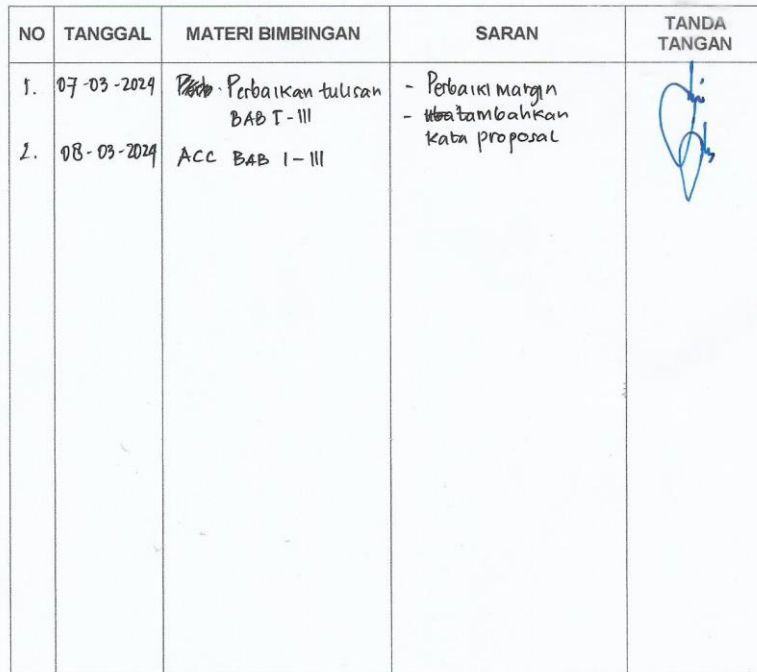 NO TANGGAL MATERI BIMBINGAN SARAN TANDA TANGAN
1. 07-03-2024 Perbaikan tulisan - Perbaiki margin
BAB I-III - tambahkan
kata proposal
2. 08-03-2024 ACC BAB I-III